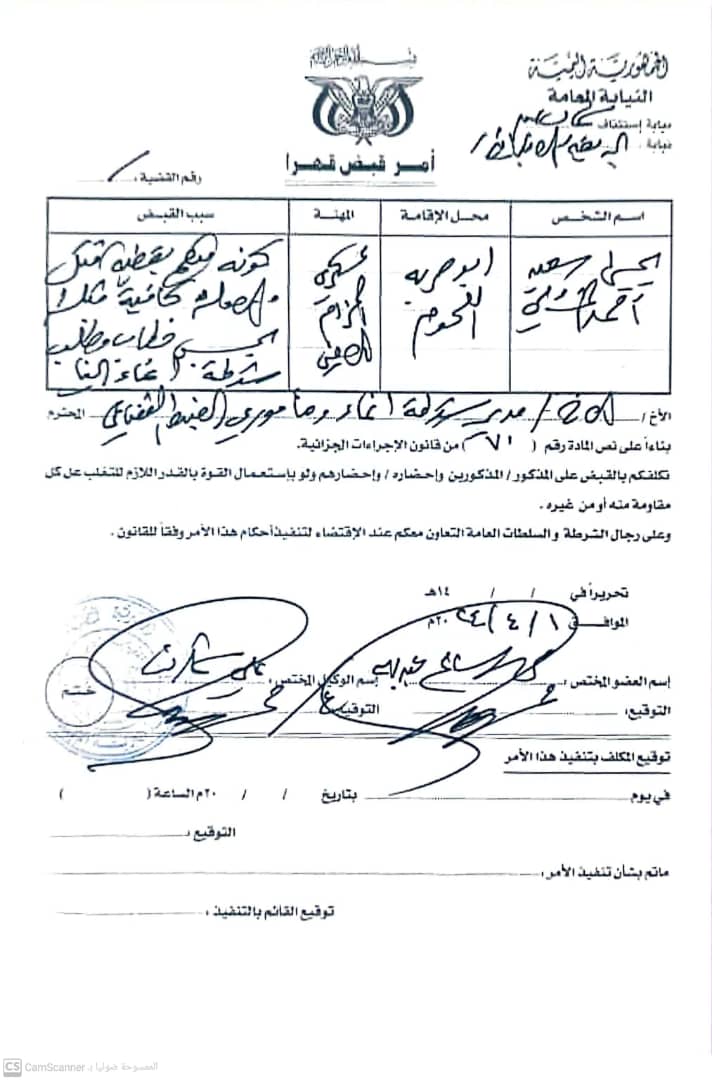 بسم الله الرحمن الرحيم
الجمهورية اليمنية
النيابة العامة
نيابة إستئناف
نيابة :
أمر قبض قهرا
رقم القضية :
اسم الشخص
محل الإقامة
المهنة
سبب القبض
يحيى سعيد
أحمد
ابو حربه
الفحوم
عسكري
الحزام
الأمني
كونه متهم بقضية قتل
الحبس
شرطة
الأخ / مدير شرطة انماء ومأموري الضبط القضائي المحترم
بناءاً على نص المادة رقم ( ٧١ ) من قانون الإجراءات الجزائية.
تكلفكم بالقبض على المذكور / المذكورين وإحضاره / وإحضارهم ولو بإستعمال القوة بالقدر اللازم للتغلب عل كل
مقاومة منه أو من غيره .
وعلى رجال الشرطة و السلطات العامة التعاون معكم عند الإقتضاء لتنفيذ أحكام هذا الأمر وفقاً للقانون .
تحريراً في / / ١٤هـ
الموافق ١ / ٤ / ٢٠٢٤م
إسم العضو المختص :
إسم الوكيل المختص :
التوقيع :
التوقيع
ختم
توقيع المكلف بتنفيذ هذا الأمر
في يوم بتاريخ / / ٢٠م الساعة ( )
التوقيع :
ماتم بشأن تنفيذ الأمر :
توقيع القائم بالتنفيذ :
CS CamScanner الممسوحة ضوئيا بـ